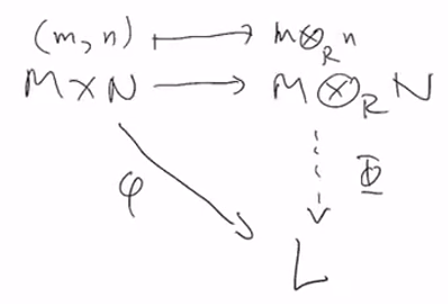 (m, n) ↦ m⊗_R n
M × N → M ⊗_R N
φ Φ
L